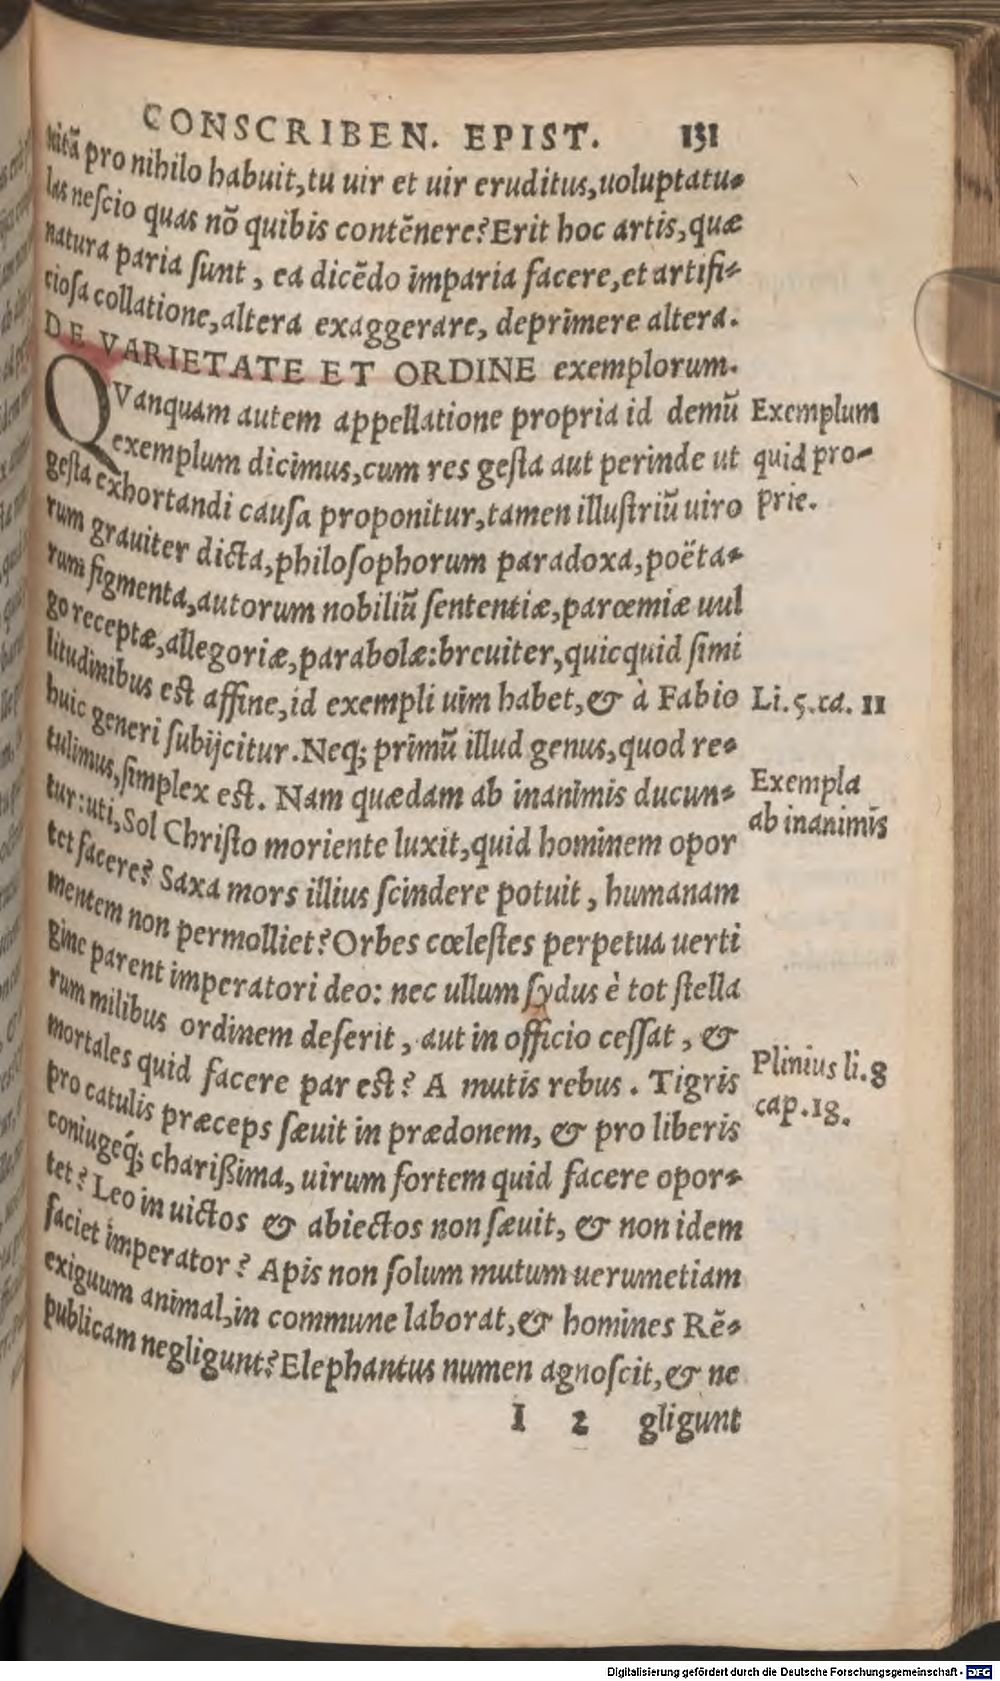 CONSCRIBEN. EPIST. 131
uitā pro nihilo habuit, tu uir et uir eruditus, uoluptatu⸗
las nescio quas nō quibis contēnere? Erit hoc artis, quæ
natura paria sunt, ea dicēdo imparia facere, et artifi⸗
ciosa collatione, altera exaggerare, deprimere altera.
DE VARIETATE ET ORDINE exemplorum.
QVanquam autem appellatione propria id demū
exemplum dicimus, cum res gesta aut perinde ut
gesta exhortandi causa proponitur, tamen illustriū uiro
rum grauiter dicta, philosophorum paradoxa, poëta⸗
rum figmenta, autorum nobiliū sententiæ, parœmiæ uul
go receptæ, allegoriæ, parabolæ: breuiter, quicquid simi
litudinibus est affine, id exempli uim habet, & à Fabio
huic generi subijcitur. Neq; primū illud genus, quod re⸗
tulimus, simplex est. Nam quædam ab inanimis ducun⸗
tur: uti, Sol Christo moriente luxit, quid hominem opor
tet facere? Saxa mors illius scindere potuit, humanam
mentem non permolliet? Orbes cœlestes perpetua uerti
gine parent imperatori deo: nec ullum sydus è tot stella
rum milibus ordinem deserit, aut in officio cessat, &
mortales quid facere par est? A mutis rebus. Tigris
pro catulis præceps sæuit in prædonem, & pro liberis
coniugéq; charißima, uirum fortem quid facere opor⸗
tet? Leo in uictos & abiectos non sæuit, & non idem
faciet imperator? Apis non solum mutum uerumetiam
exiguum animal, in commune laborat, & homines Rē⸗
publicam negligunt? Elephantus numen agnoscit, & ne
I 2 gligunt
Exemplum
quid pro⸗
prie.
Li. 5. ca. 11
Exempla
ab inanimis
Plinius li. 8
cap. 18.
Digitalisierung gefördert durch die Deutsche Forschungsgemeinschaft - DFG